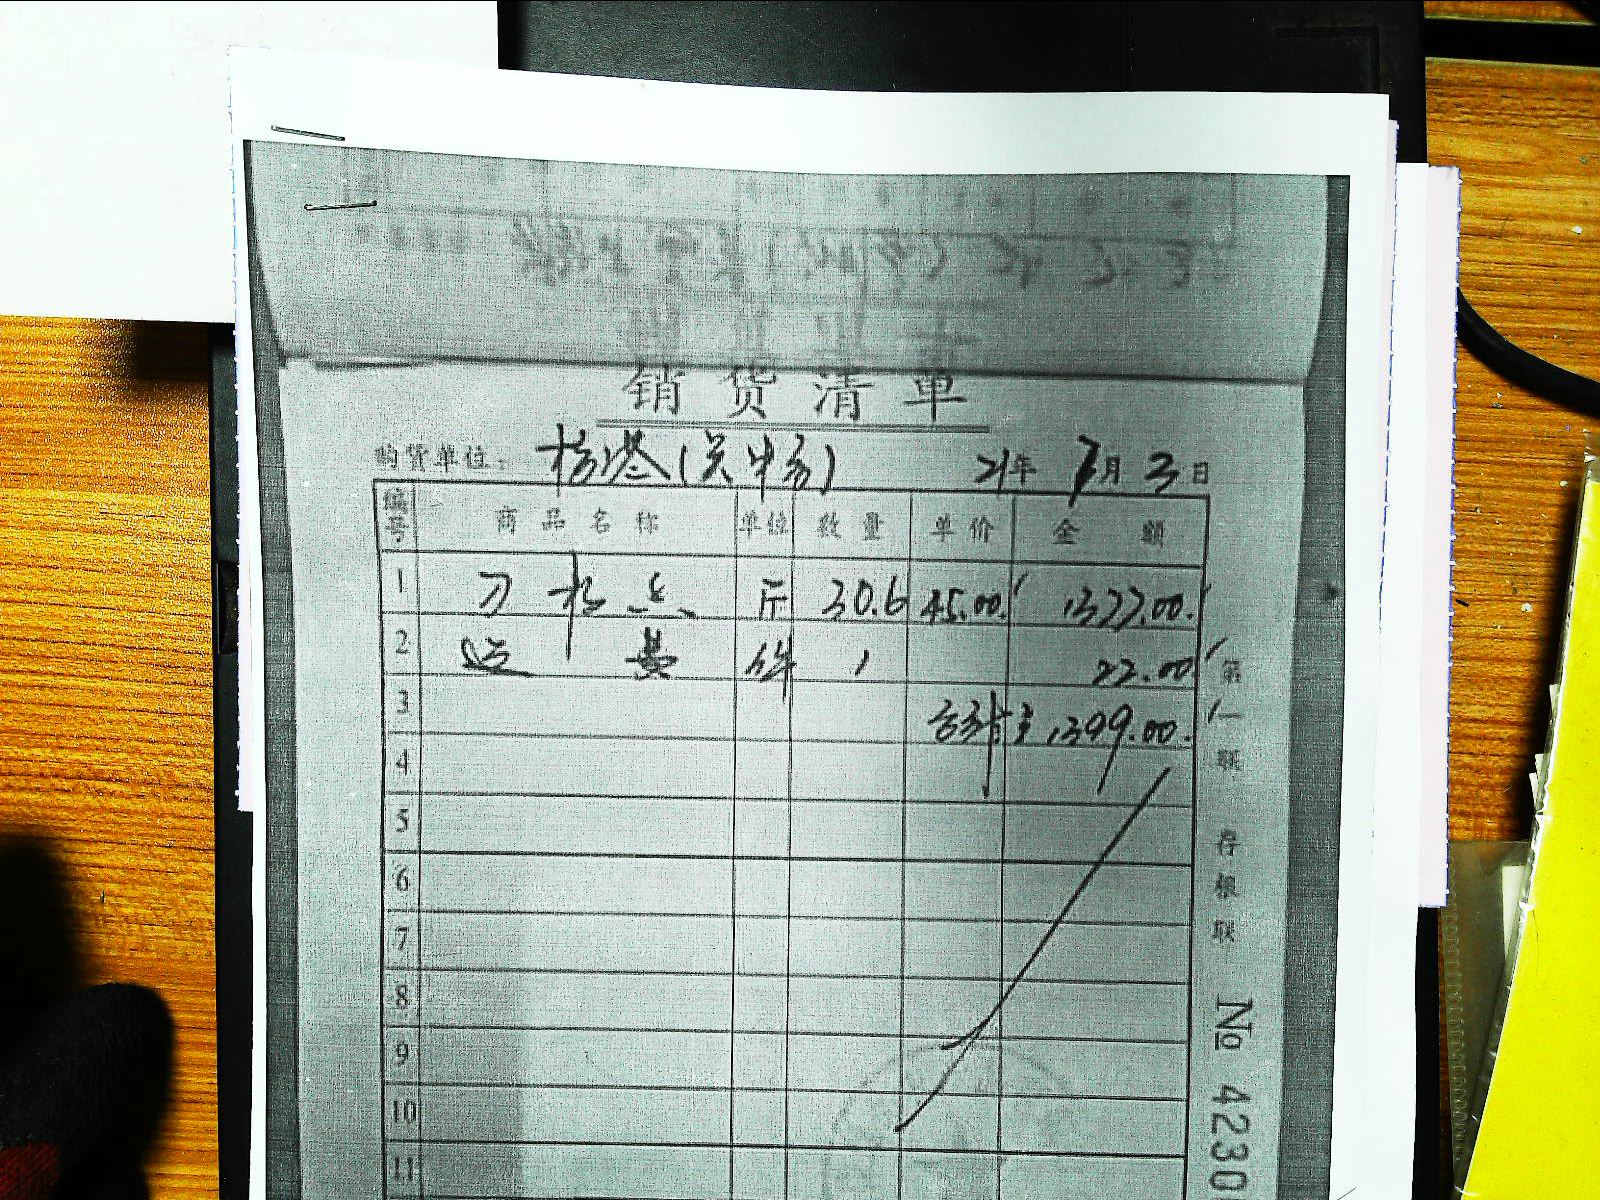 销货清单
购货单位: 杨塔(吴中场) 21年7月3日
编号 商品名称 单位 数量 单价 金额
1 刀 斤 30.6 45.00 1377.00.
2 运费 件 1 22.00
3 合计: 1399.00.
4
5
6
7
8
9
10
11
第一联 存根联
No 4230